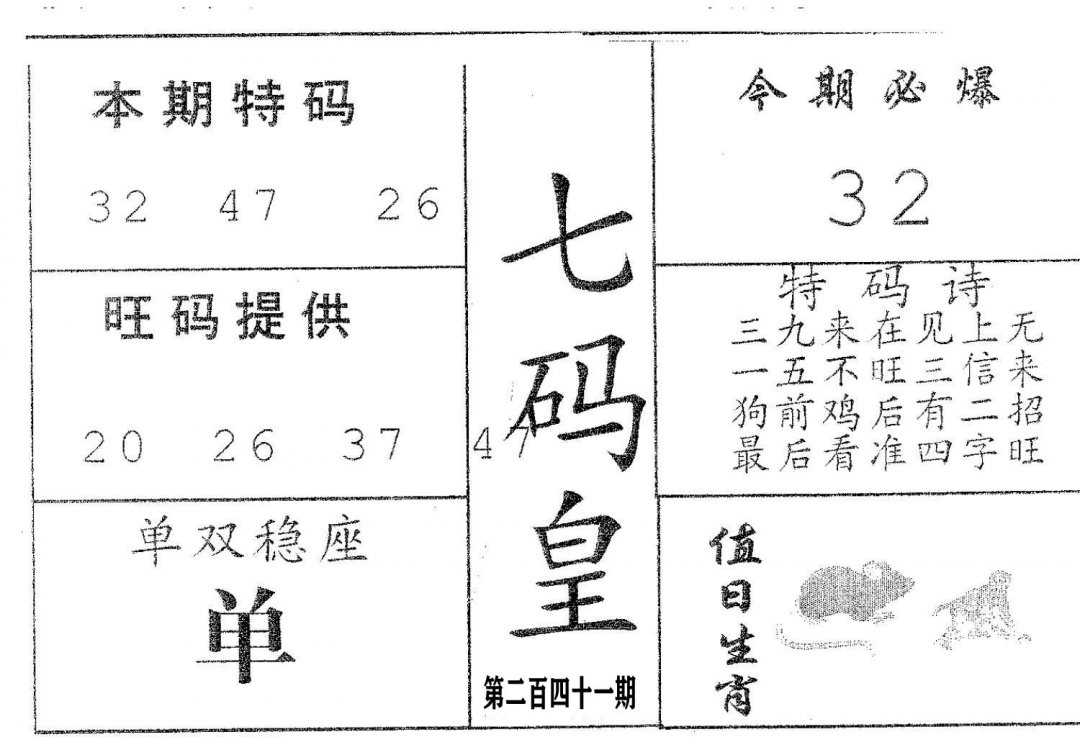 本期特码
32 47 26
旺码提供
20 26 37 47
单双稳座
单
七码皇
第二百四十一期
今期必爆
32
特码诗
三九来在见上无
一五不旺三信来
狗前鸡后有二招
最后看准四字旺
值日生肖